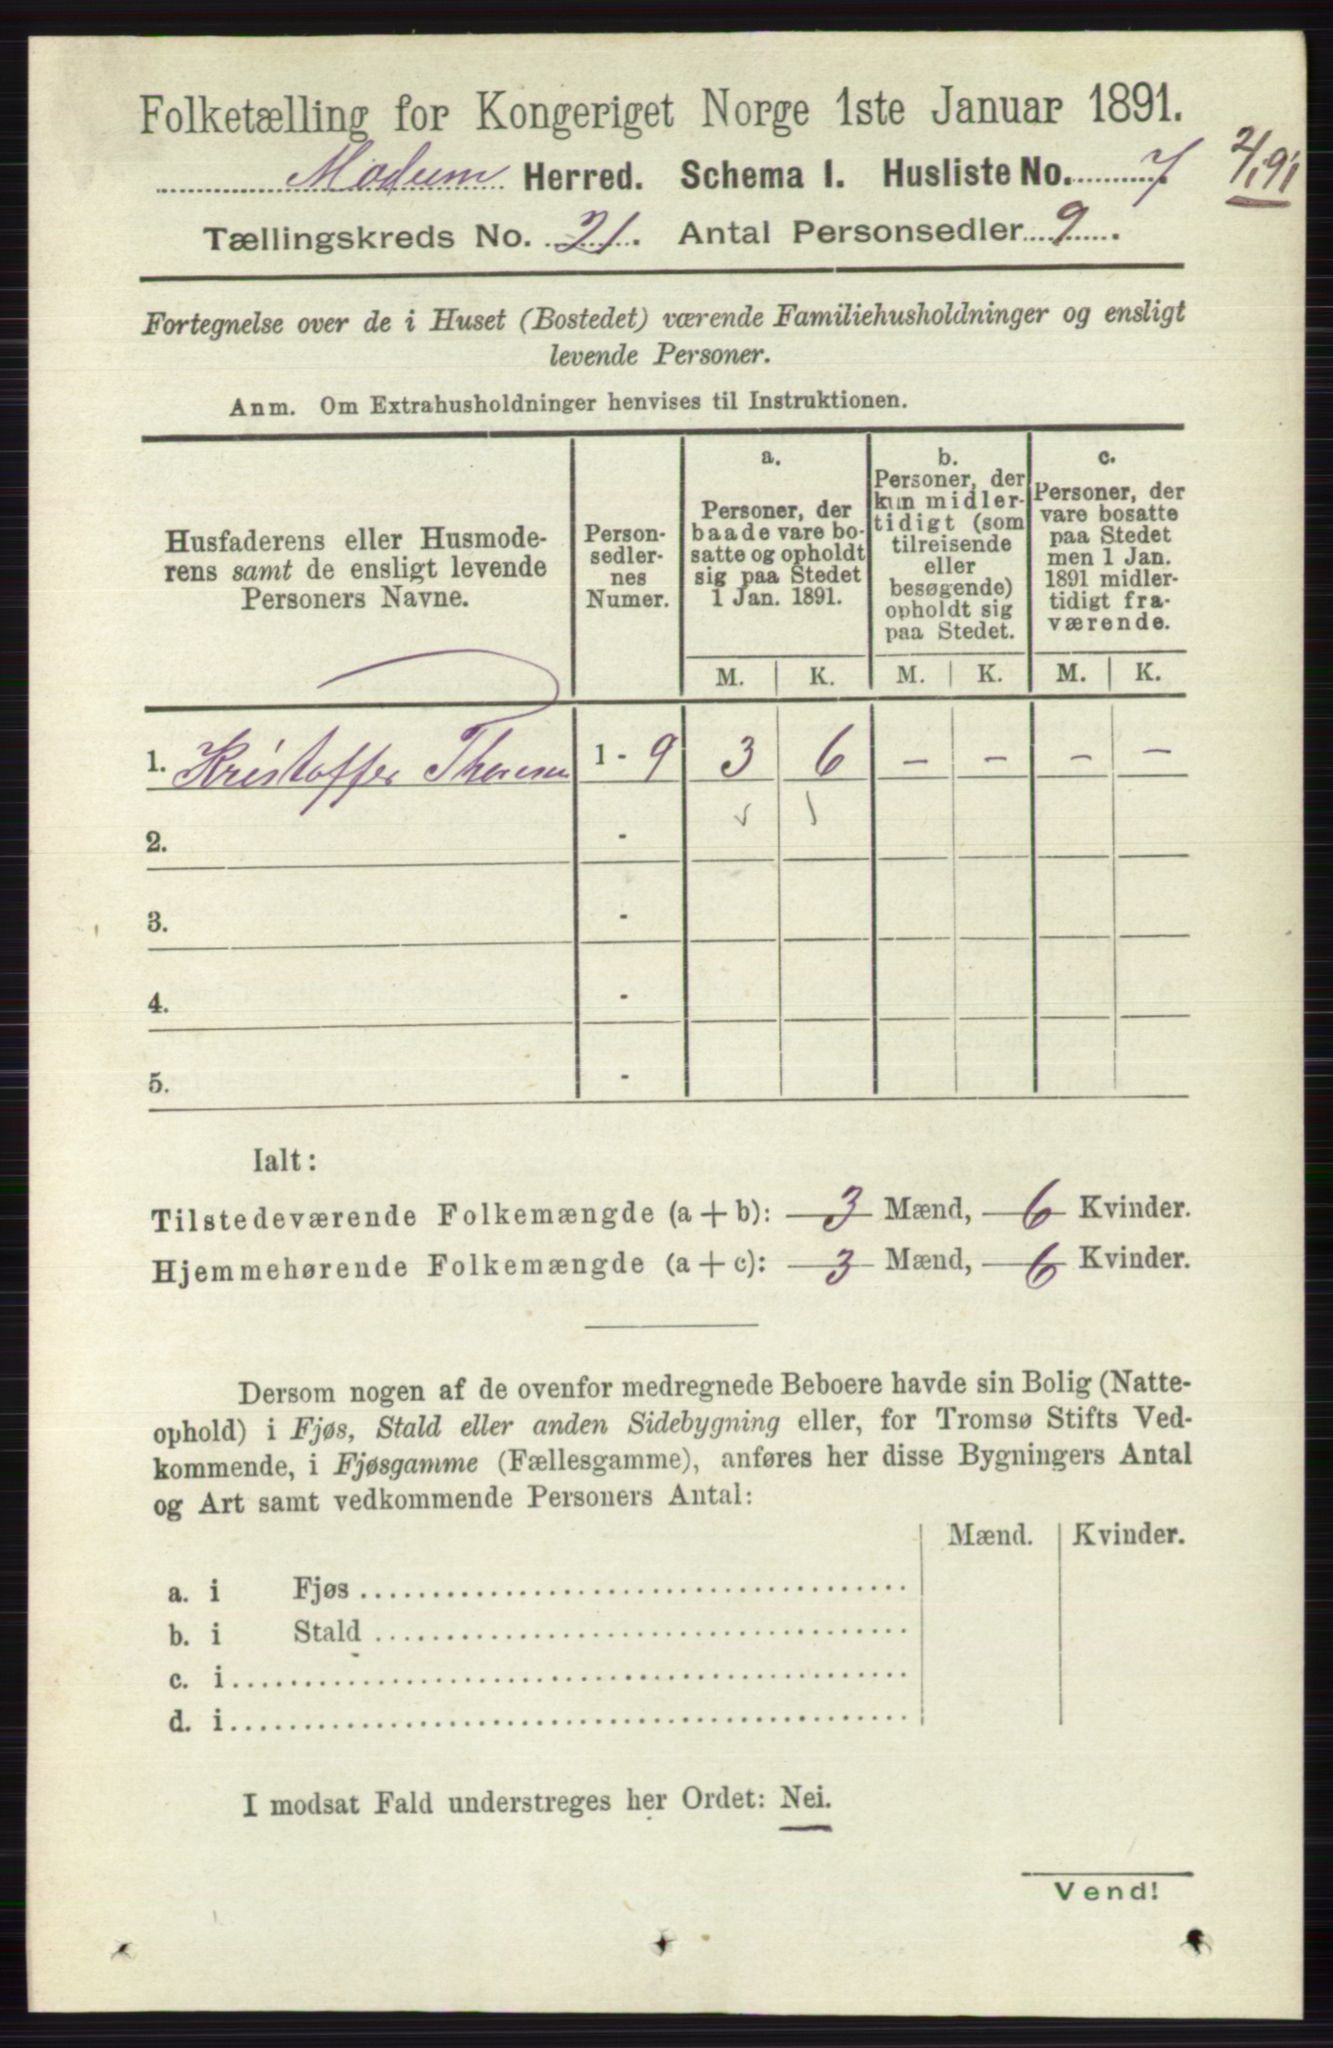 Folketælling for Kongeriget Norge 1ste Januar 1891.
Modum Herred. Schema I. Husliste No. 7
2/1 91
Tællingskreds No. 21. Antal Personsedler 9.
Fortegnelse over de i Huset (Bostedet) værende Familiehusholdninger og ensligt
levende Personer.
Anm. Om Extrahusholdninger henvises til Instruktionen.
Husfaderens eller Husmode-
rens samt de ensligt levende
Personers Navne.
Person-
sedler-
nes
Numer.
a.
Personer, der
baade vare bo-
satte og opholdt
sig paa Stedet
1 Jan. 1891.
b.
Personer, der
kun midler-
tidigt (som
tilreisende
eller
besøgende)
opholdt sig
paa Stedet.
c.
Personer, der
vare bosatte
paa Stedet
men 1 Jan.
1891 midler-
tidigt fra-
værende.
M. K. M. K. M. K.
1. Kristoffer Thoresen 1 - 9 3 6 - - - -
2. -
3. -
4. -
5. -
Ialt:
Tilstedeværende Folkemængde (a + b): 3 Mænd, 6 Kvinder.
Hjemmehørende Folkemængde (a + c): 3 Mænd, 6 Kvinder.
Dersom nogen af de ovenfor medregnede Beboere havde sin Bolig (Natte-
ophold) i Fjøs, Stald eller anden Sidebygning eller, for Tromsø Stifts Ved-
kommende, i Fjøsgamme (Fællesgamme), anføres her disse Bygningers Antal
og Art samt vedkommende Personers Antal:
Mænd. Kvinder.
a. i Fjøs
b. i Stald
c. i
d. i
I modsat Fald understreges her Ordet: Nei.
Vend!